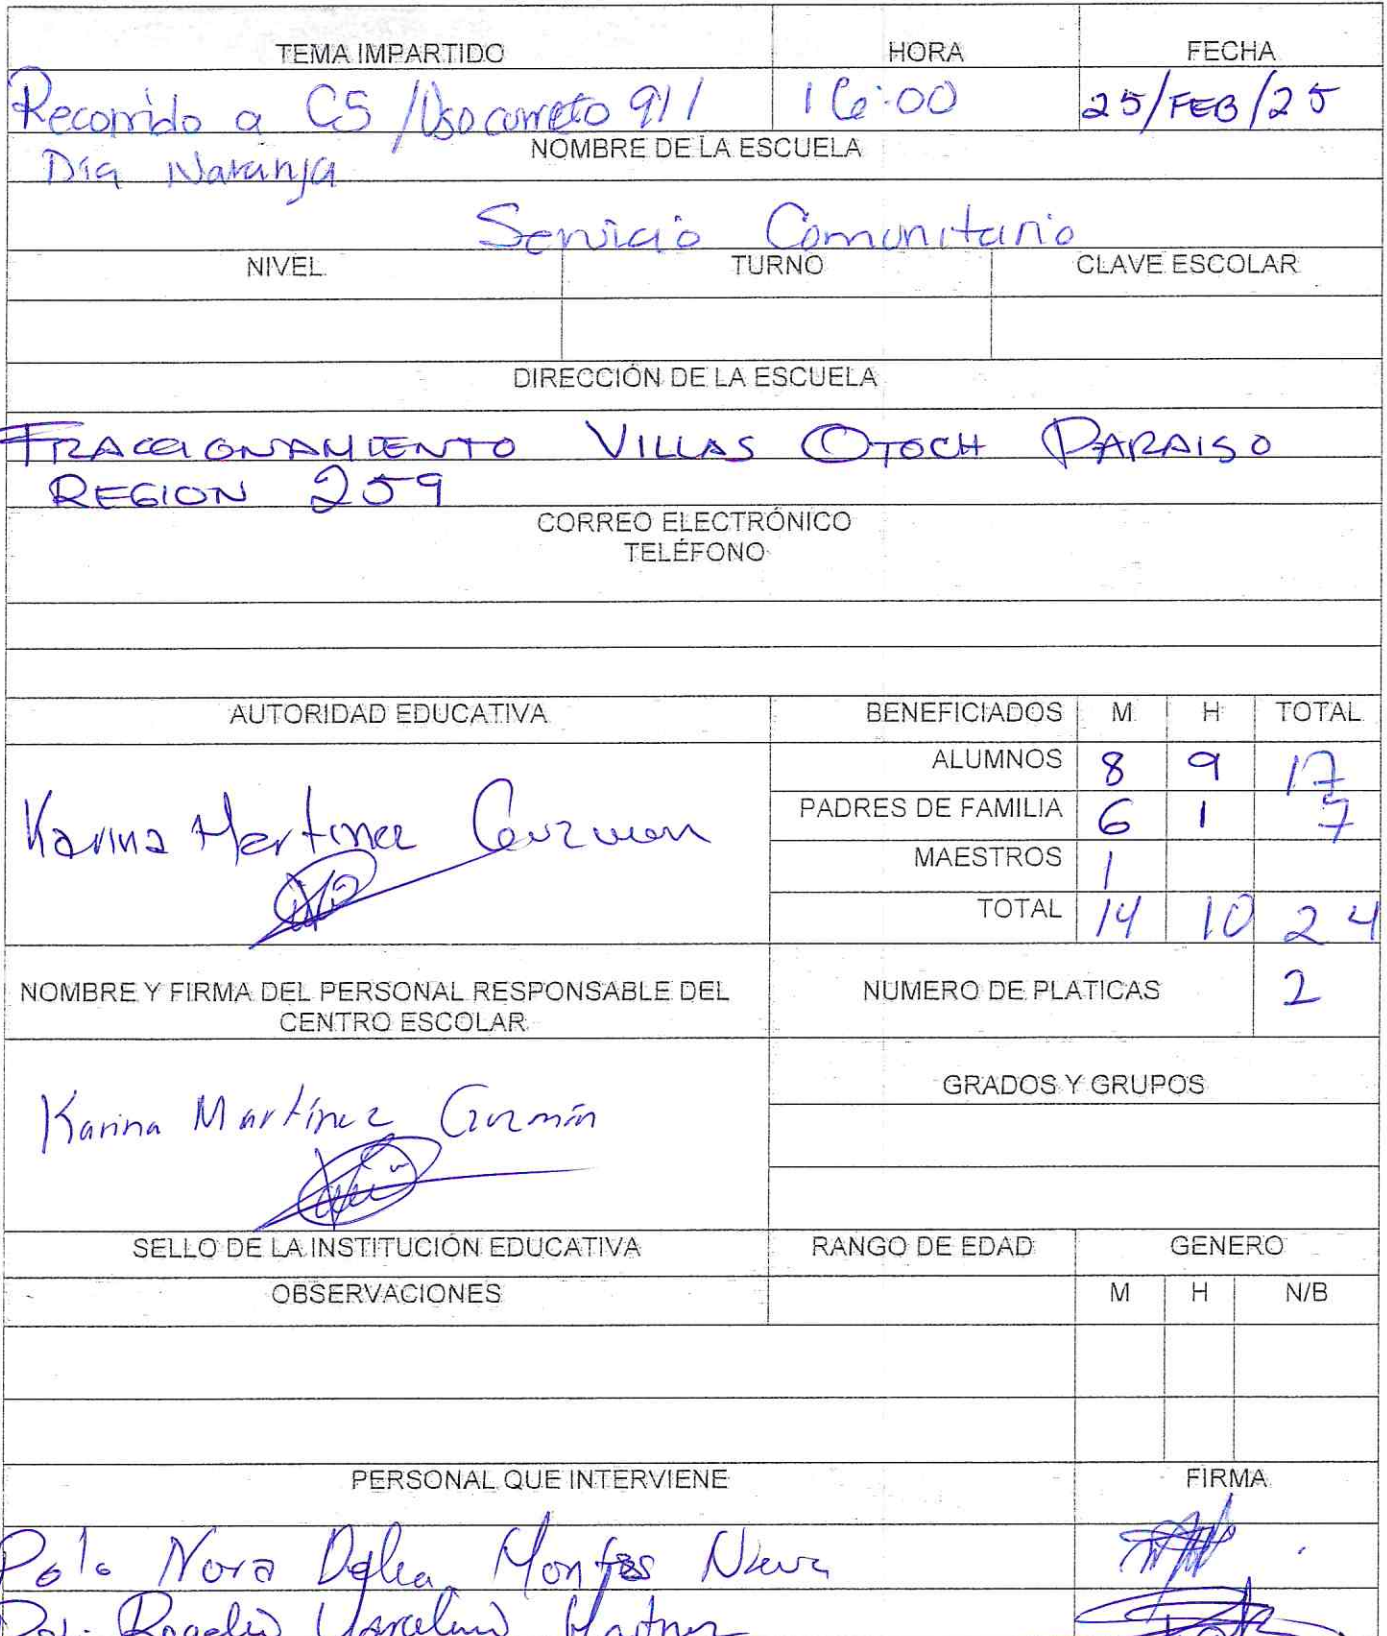 TEMA IMPARTIDO HORA FECHA
Recorrido a C5 / Uso correto 911 16:00 25/FEB/25
NOMBRE DE LA ESCUELA
Día Naranja
Servicio Comunitario
NIVEL TURNO CLAVE ESCOLAR
DIRECCIÓN DE LA ESCUELA
FRACCIONAMIENTO VILLAS OTOCH PARAISO
REGION 259
CORREO ELECTRÓNICO
TELÉFONO
AUTORIDAD EDUCATIVA BENEFICIADOS M H TOTAL
ALUMNOS 8 9 17
Karina Martinez Guzman
PADRES DE FAMILIA 6 1 7
MAESTROS 1
TOTAL 14 10 24
NOMBRE Y FIRMA DEL PERSONAL RESPONSABLE DEL
CENTRO ESCOLAR
NUMERO DE PLATICAS 2
GRADOS Y GRUPOS
Karina Martínez Guzmán
SELLO DE LA INSTITUCIÓN EDUCATIVA RANGO DE EDAD GENERO
OBSERVACIONES M H N/B
PERSONAL QUE INTERVIENE FIRMA
Nora Delia Montes
Rogelio